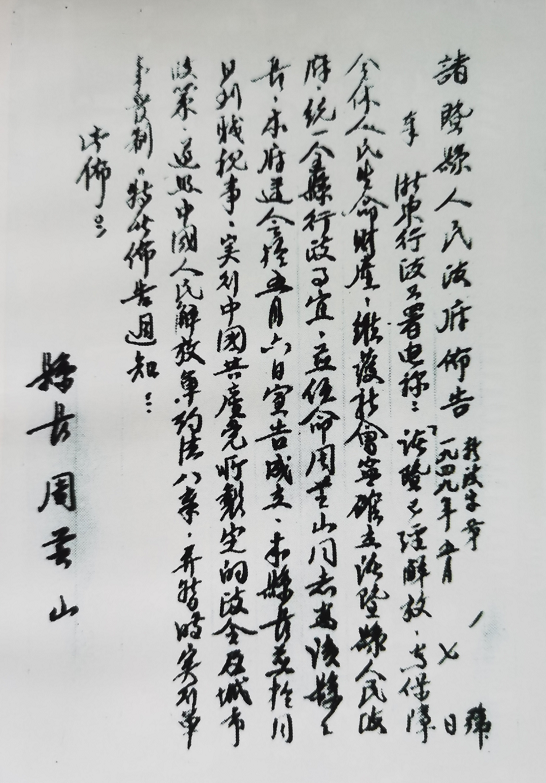 諸暨縣人民政府佈告 新政字第 1 號
一九四九年五月 七 日
奉 浙東行政公署電称：「諸暨已經解放，为保障
全体人民生命財產，維護社會安寧確立諸暨縣人民政
府，統一全縣行政事宜，茲任命周芝山同志為該縣縣
長，本府遵令於五月六日宣告成立，本縣長並於同
日到职視事，实行中國共產党所製定的政令及城市
政策，遵照中國人民解放軍約法八章，并暫時实行軍
事管制。特此佈告週知：
此佈：
縣長 周芝山